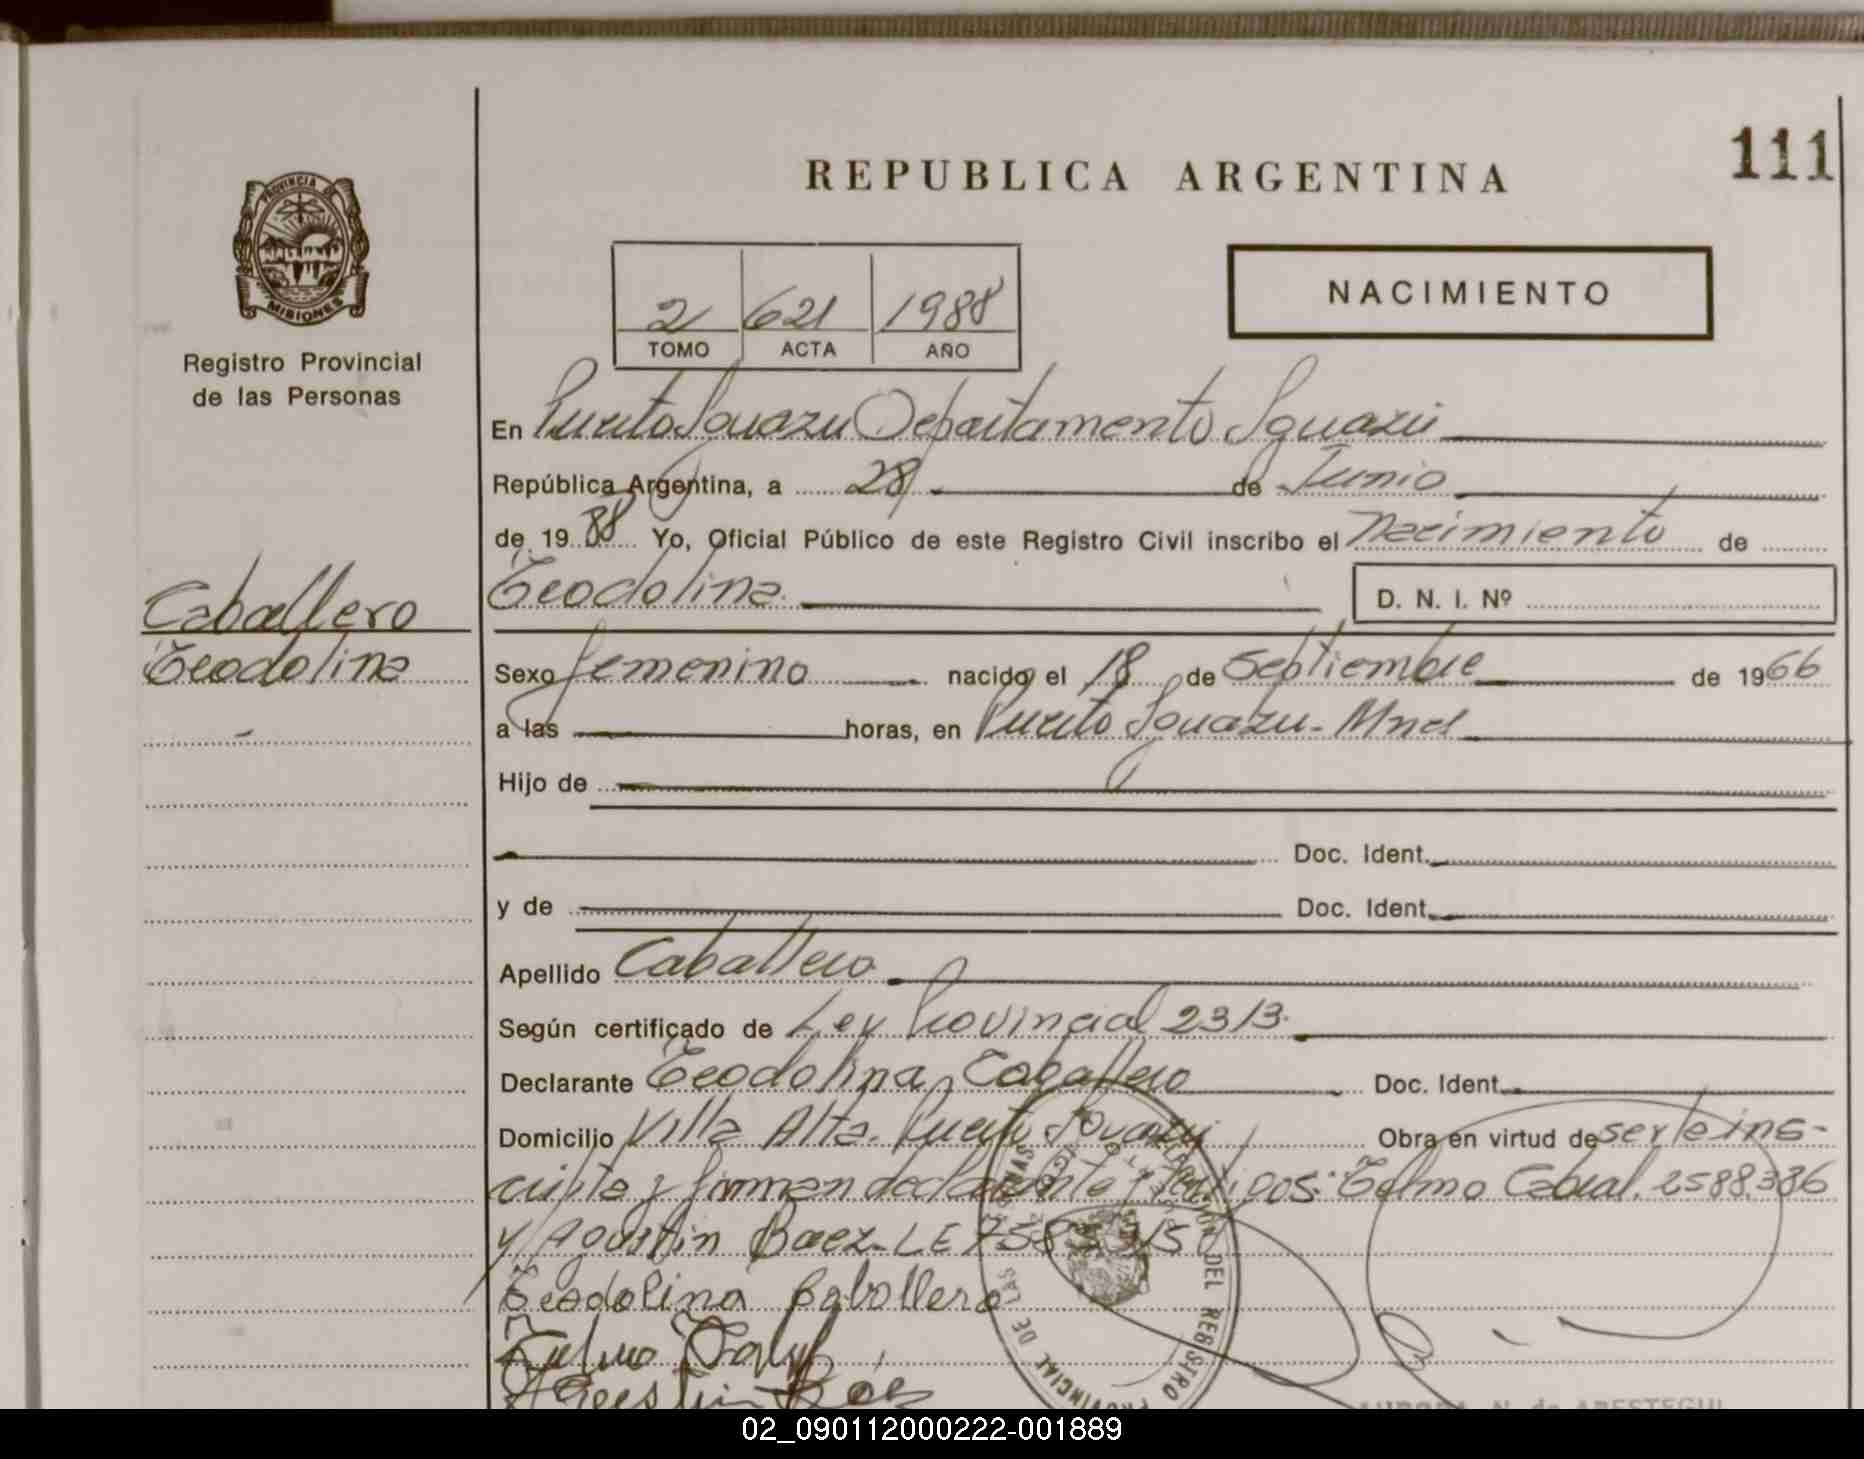 111
REPUBLICA ARGENTINA
PROVINCIA DE
MISIONES
NACIMIENTO
2 621 1988
TOMO ACTA AÑO
Registro Provincial
de las Personas
En Puerto Iguazu Departamento Iguazú
República Argentina, a 28 de Junio
de 1988 Yo, Oficial Público de este Registro Civil inscribo el Nacimiento de
Teodolina D. N. I. Nº
Caballero
Teodolina
Sexo femenino nacido el 18 de Septiembre de 1966
a las horas, en Puerto Iguazu - Mnes
Hijo de
Doc. Ident.
y de Doc. Ident.
Apellido Caballero
Según certificado de Ley Provincial 2313.
Declarante Teodolina Caballero Doc. Ident.
Domicilio Villa Alta. Puerto Iguazu Obra en virtud de ser la ins-
cripta y firman declarante y testigos: Telmo Cabral. 2588.336
y Agustin Baez - LE
Teodolina Caballero
Telmo
Agustin Baez
PROVINCIAL DE LAS
DEL REGISTRO
02_090112000222-001889